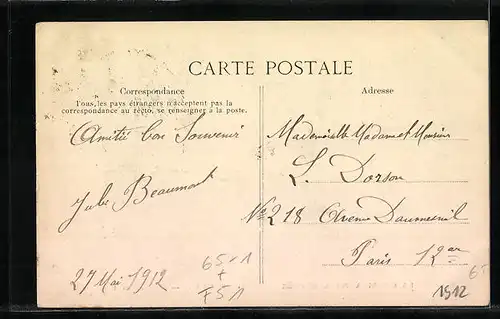 CARTE POSTALE
Correspondance
Tous les pays étrangers n'acceptent pas la
correspondance au recto, se renseigner à la poste.
Amitié Bon Souvenir
Jules Beaumont
27 Mai 1912
65-1
+
F51
Adresse
Mademoiselle Madame et Monsieur
L. Dorson
No 218 Avenue Daumesnil
Paris 12
65
1912